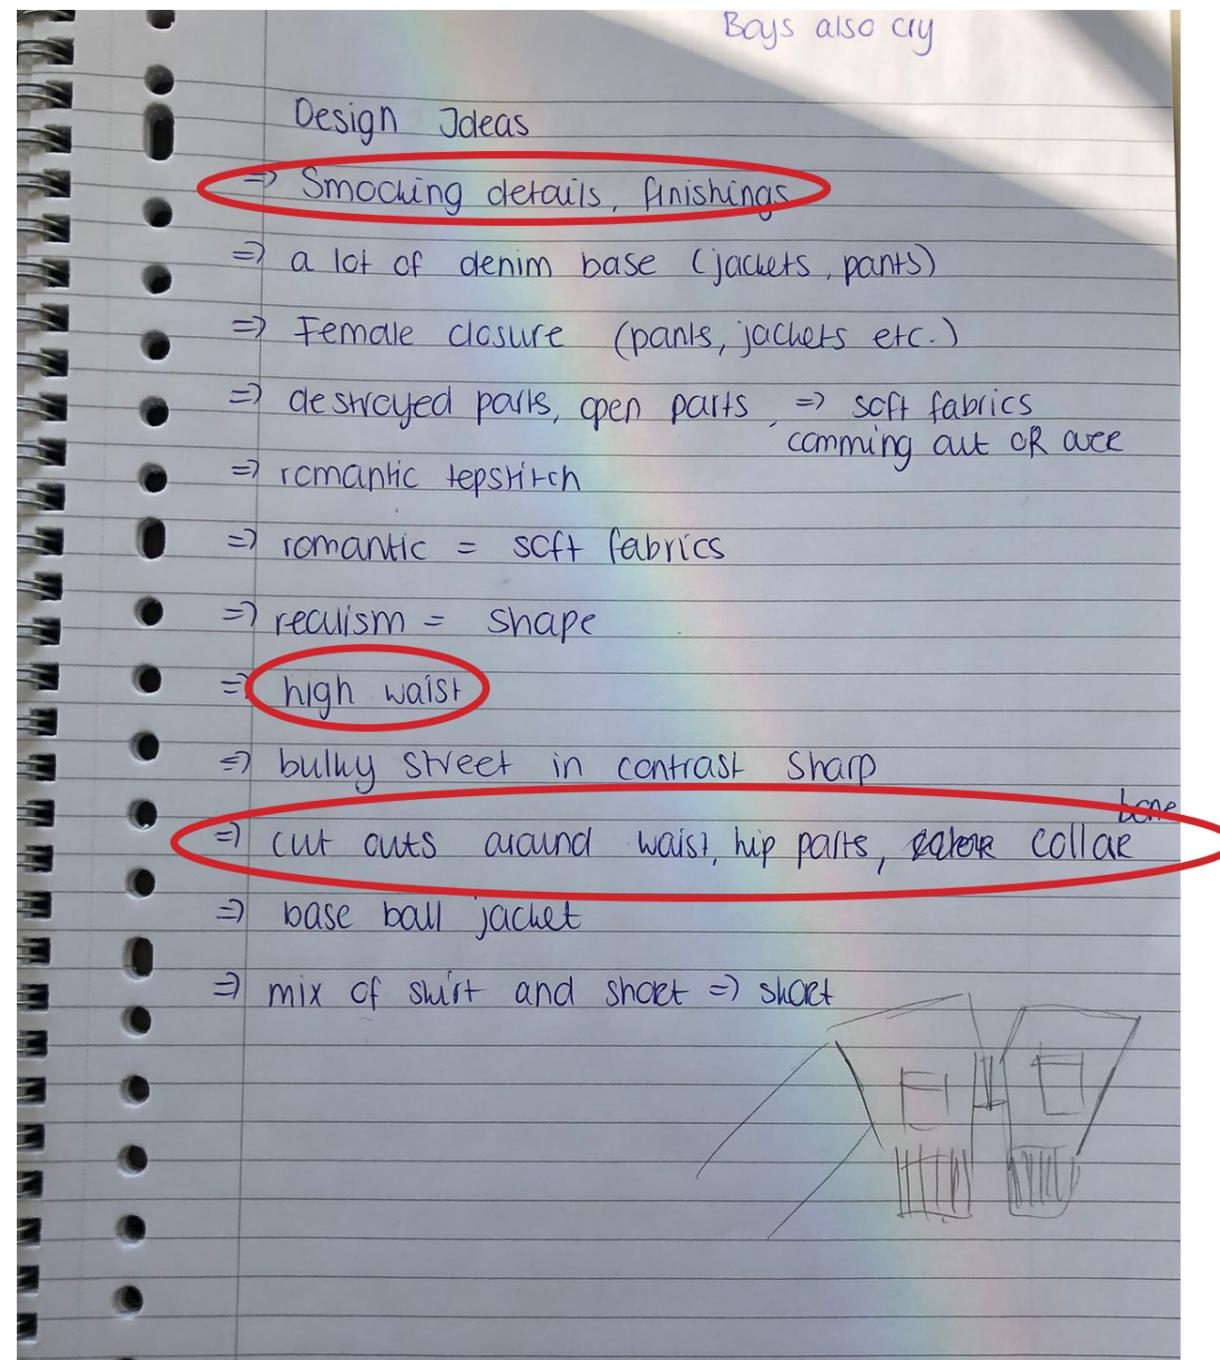 Boys also cry
Design Ideas
=> Smocking details, finishings
=> a lot of denim base (jackets, pants)
=> Female closure (pants, jackets etc.)
=> destroyed parts, open parts => soft fabrics
comming out OR over
=> romantic topstitch
=> romantic = soft fabrics
=> realism = shape
=> high waist
=> bulky street in contrast sharp
bone
=> cut outs around waist, hip parts, collar
=> base ball jacket
=> mix of skirt and short => skort